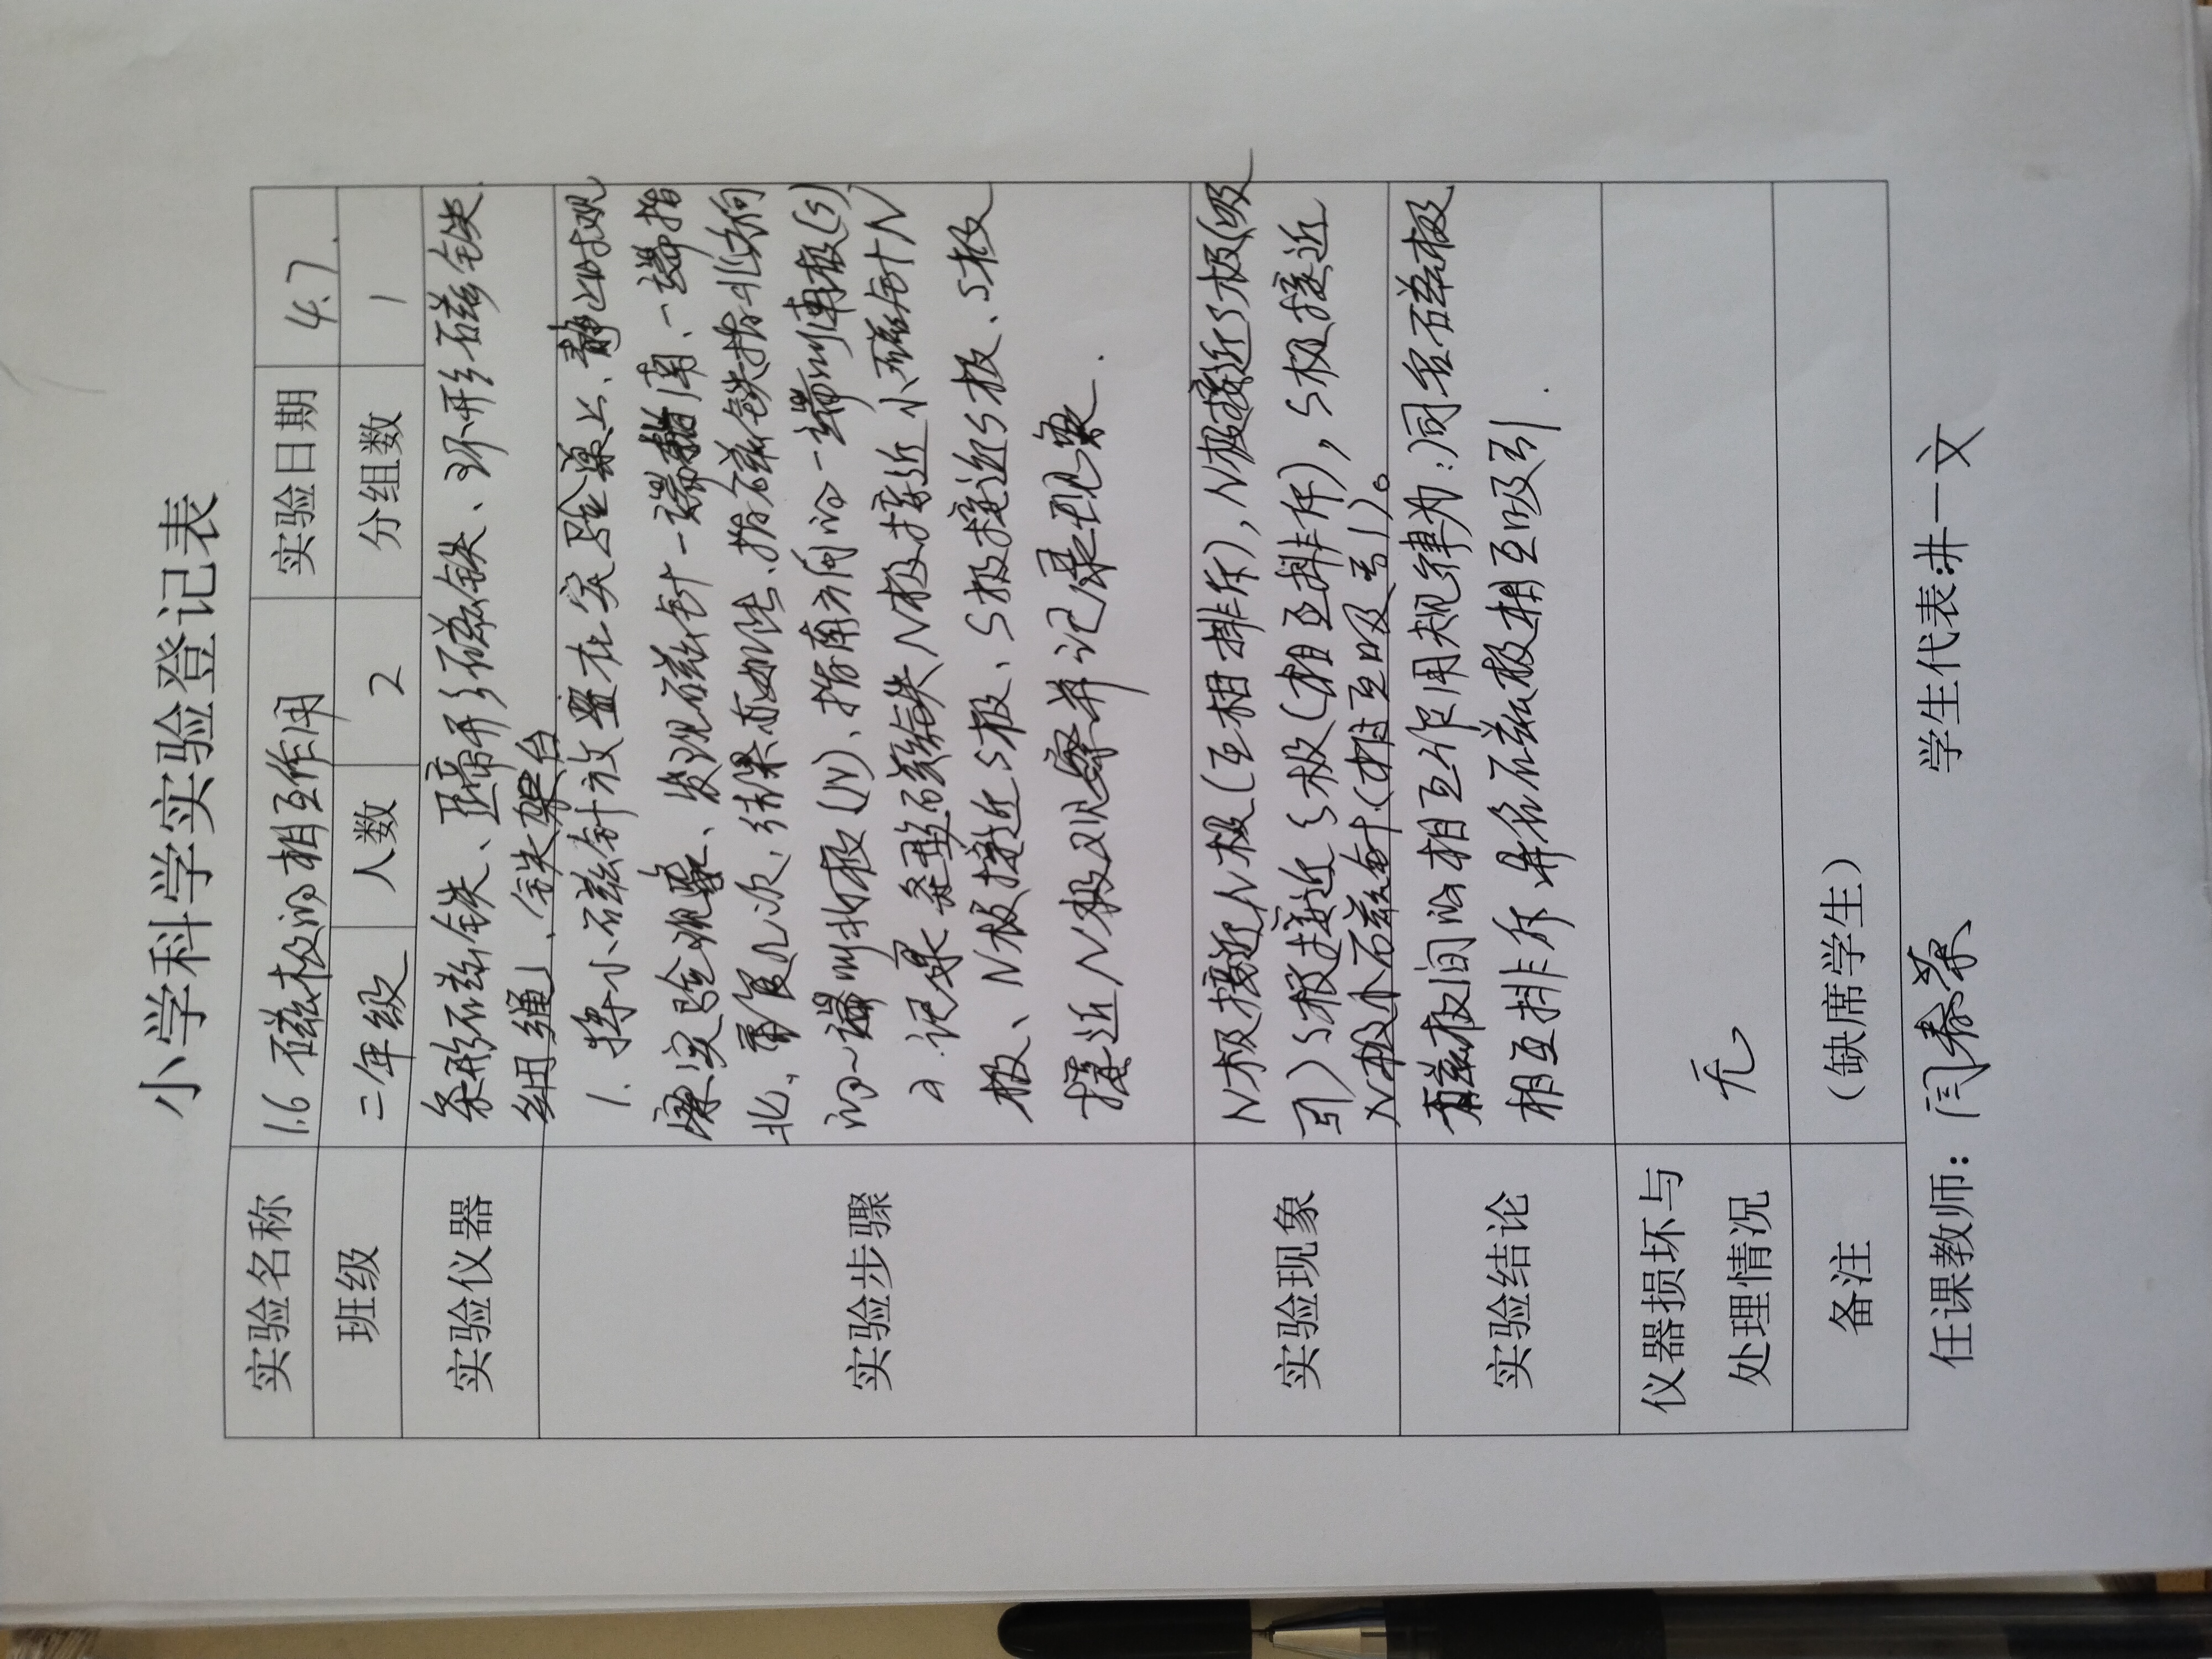 小学科学实验登记表
实验名称 1.6 磁极的相互作用 实验日期 4.7.
班级 二年级 人数 2 分组数 1
实验仪器 条形磁铁、蹄形磁铁、环形磁铁.
细绳、铁架台
实验步骤
1. 将小磁针放置在实验桌上、静止时观
察实验现象、发现磁针一端指南、一端指
北、重复几次,结果亦如此、指磁铁指北方向
的一端叫北极(N)、指南方向的一端叫南极(S)
2.记录条形磁铁N极接近小磁针N
极、N极接近S极、S极接近S极、S极
接近N极观察并记录现象.
实验现象
N极接近N极(互相排斥),N极接近S极(吸
引)S极接近S极(相互排斥),S极接近
N极小磁针(相互吸引)。
实验结论
磁极间的相互作用规律为:同名磁极
相互排斥 异名磁极相互吸引.
仪器损坏与
处理情况
无
备注 (缺席学生)
任课教师: 闫春荣 学生代表:井一文